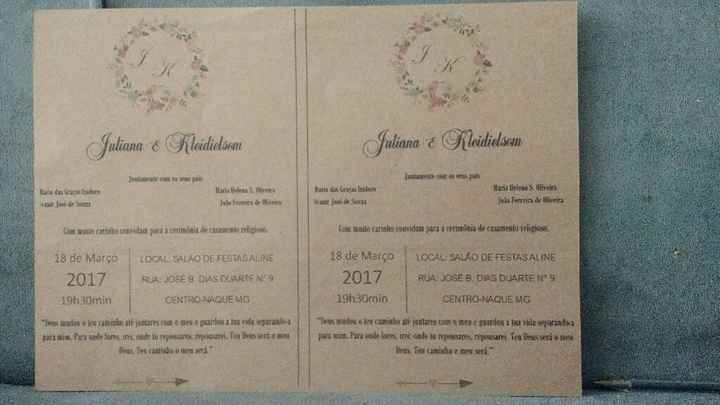 J K
Juliana & Kleidielsom
Juntamente com os seus pais
Maria das Graças Isidoro
José de Souza
Maria Helena S. Oliveira
João Ferreira de Oliveira
Com muito carinho convidam para a cerimônia de casamento religioso.
18 de Março
2017
19h30min
LOCAL: SALÃO DE FESTAS ALINE
RUA: JOSÉ B. DIAS DUARTE N° 9
CENTRO-NAQUE MG
"Deus mudou o teu caminho até juntares com o meu e guardou a tua vida separando-a
para mim. Para onde fores, irei, onde tu repousares, repousarei. Teu Deus será o meu
Deus. Teu caminho o meu será."
J K
Juliana & Kleidielsom
Juntamente com os seus pais
Maria das Graças Isidoro
José de Souza
Maria Helena S. Oliveira
João Ferreira de Oliveira
Com muito carinho convidam para a cerimônia de casamento religioso.
18 de Março
2017
19h30min
LOCAL: SALÃO DE FESTAS ALINE
RUA: JOSÉ B. DIAS DUARTE N° 9
CENTRO-NAQUE MG
"Deus mudou o teu caminho até juntares com o meu e guardou a tua vida separando-a
para mim. Para onde fores, irei, onde tu repousares, repousarei. Teu Deus será o meu
Deus. Teu caminho o meu será."